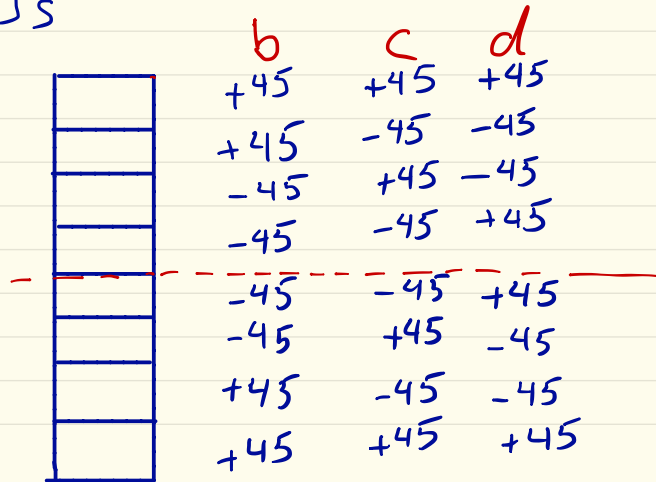 JS
b c d
+45 +45 +45
+45 -45 -45
-45 +45 -45
-45 -45 +45
-45 -45 +45
-45 +45 -45
+45 -45 -45
+45 +45 +45